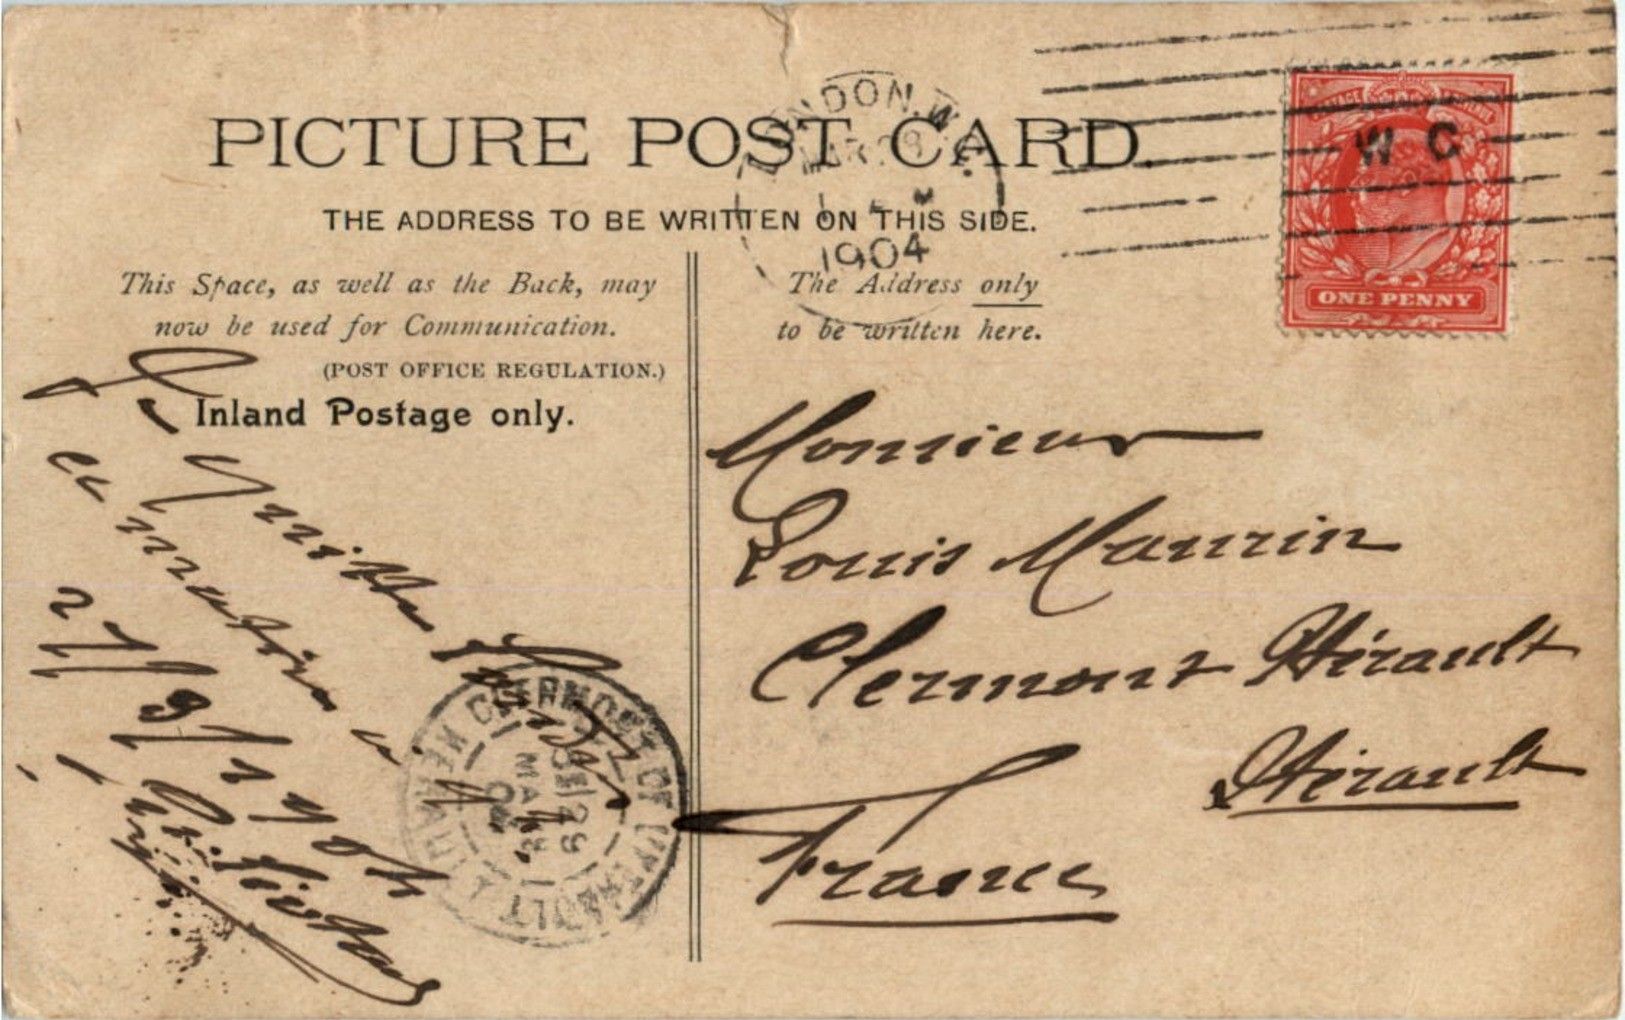 PICTURE POST CARD.
THE ADDRESS TO BE WRITTEN ON THIS SIDE.
This Space, as well as the Back, may
now be used for Communication.
(POST OFFICE REGULATION.)
Inland Postage only.
The Address only
to be written here.
LONDON. W.C.
MAR 28
1904
W C
ONE PENNY
Je
quitte Londres
ce matin
27/3/1904
Monsieur
Louis Maurin
Clermont Hérault
Hérault
France
CLERMONT DE L'HERAULT
HERAULT
29
MARS
04